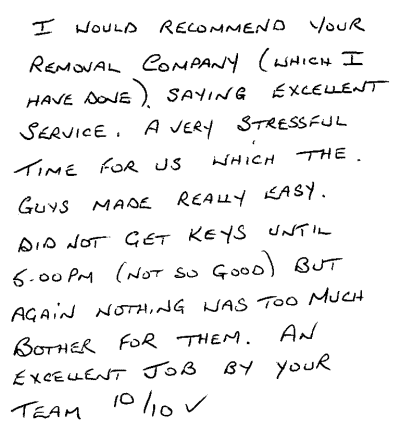 I WOULD RECOMMEND YOUR
REMOVAL COMPANY (WHICH I
HAVE DONE), SAYING EXCELLENT
SERVICE. A VERY STRESSFUL
TIME FOR US WHICH THE.
GUYS MADE REALLY EASY.
DID NOT GET KEYS UNTIL
5.00PM (NOT SO GOOD) BUT
AGAIN NOTHING WAS TOO MUCH
BOTHER FOR THEM. AN
EXCELLENT JOB BY YOUR
TEAM 10/10 ✓